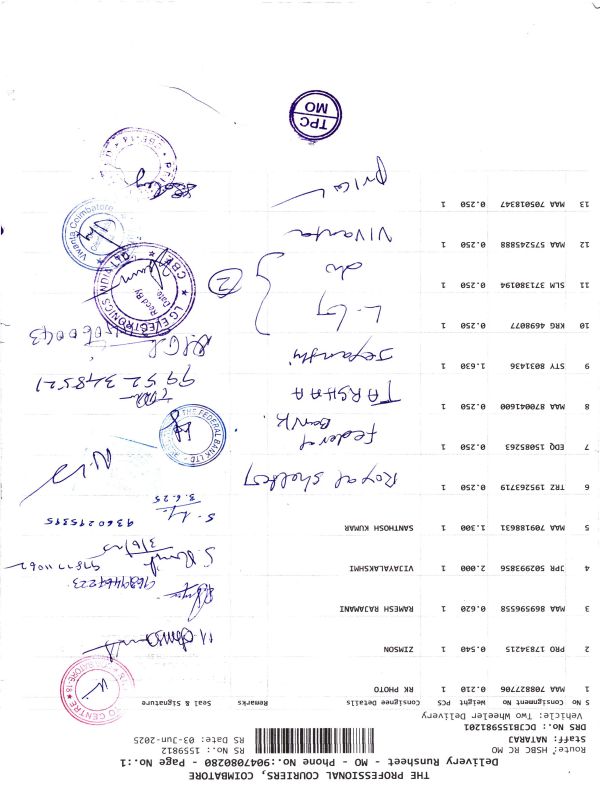 THE PROFESSIONAL COURIERS, COIMBATORE
Delivery Runsheet - MO - Phone No.:9047080280 - Page No.:1
Route: HSBC RC MO
Staff: NATARAJ
DRS No.: DCJB155981201
Vehicle: Two Wheeler Delivery
RS No.: 1559812
RS Date: 03-Jun-2025
S No Consignment No Weight PCS Consignee Details Remarks Seal & Signature
1 MAA 708827706 0.210 1 RK PHOTO
2 PRO 17834215 0.540 1 ZIMSON
3 MAA 869596558 0.620 1 RAMESH RAJAMANI
4 JPR 502993856 2.000 1 VIJAYALAKSHMI
9689464223
S.
3/6/25
5 MAA 709188631 1.300 1 SANTHOSH KUMAR
9360275395
3.6.25
6 TRZ 195263719 0.250 1 Royal shelter
7 EDQ 15085263 0.250 1 Federal Bank
THE FEDERAL BANK LTD
8 MAA 870041600 0.250 1 TARSHAA
9952348521
9 STY 8031436 1.630 1
10 KRG 4698077 0.250 1 LG
LG ELECTRONICS
Recd By
Date
CBE
11 SLM 371380194 0.250 1 do
2
12 MAA 575245888 0.250 1 Vivanta
Vivanta Coimbatore
13 MAA 705018347 0.250 1
TPC
MO